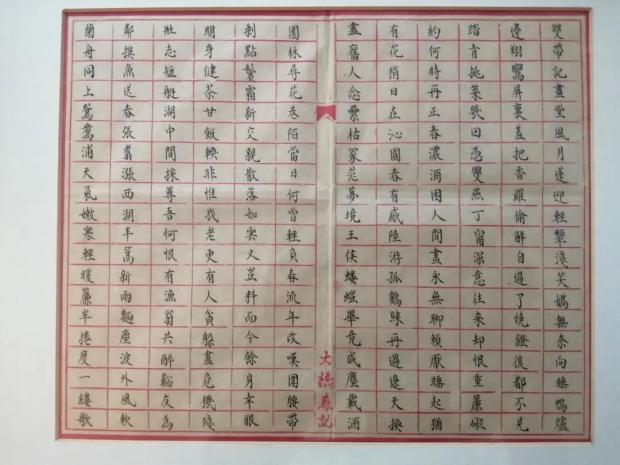 雙帶記畫堂風月逢迎輕顰淺笑嬌無奈向睡鴨爐
邊翔鸞屏裏羞把香羅偷解自過了燒燈後都不見
踏青挑菜幾回憑雙燕丁甯深意往來却恨重簾礙
約何時再正春濃酒困人閒晝永無聊賴厭睡起猶
有花梢日在沁園春有感陸游孤鶴歸再過遼天換
盡舊人念纍枯冢茫夢境王侯螻蟻畢竟成塵載酒
大橋記
園林尋花巷陌當日何曾輕負春流年改嘆圍腰帶
剩點鬢霜新交親散落如雲又豈料而今餘身幸眼
明身健茶甘飯輭非惟我老更有人貧躲盡危機殘
壯志短艇湖中閒採蓴吾何恨有漁翁共醉谿友為
鄰撰魚送春張翥漲西湖半篙新雨麴塵波外風軟
蘭舟同上鴛鴦浦天氣嫩寒輕暖簾半捲度一縷歌